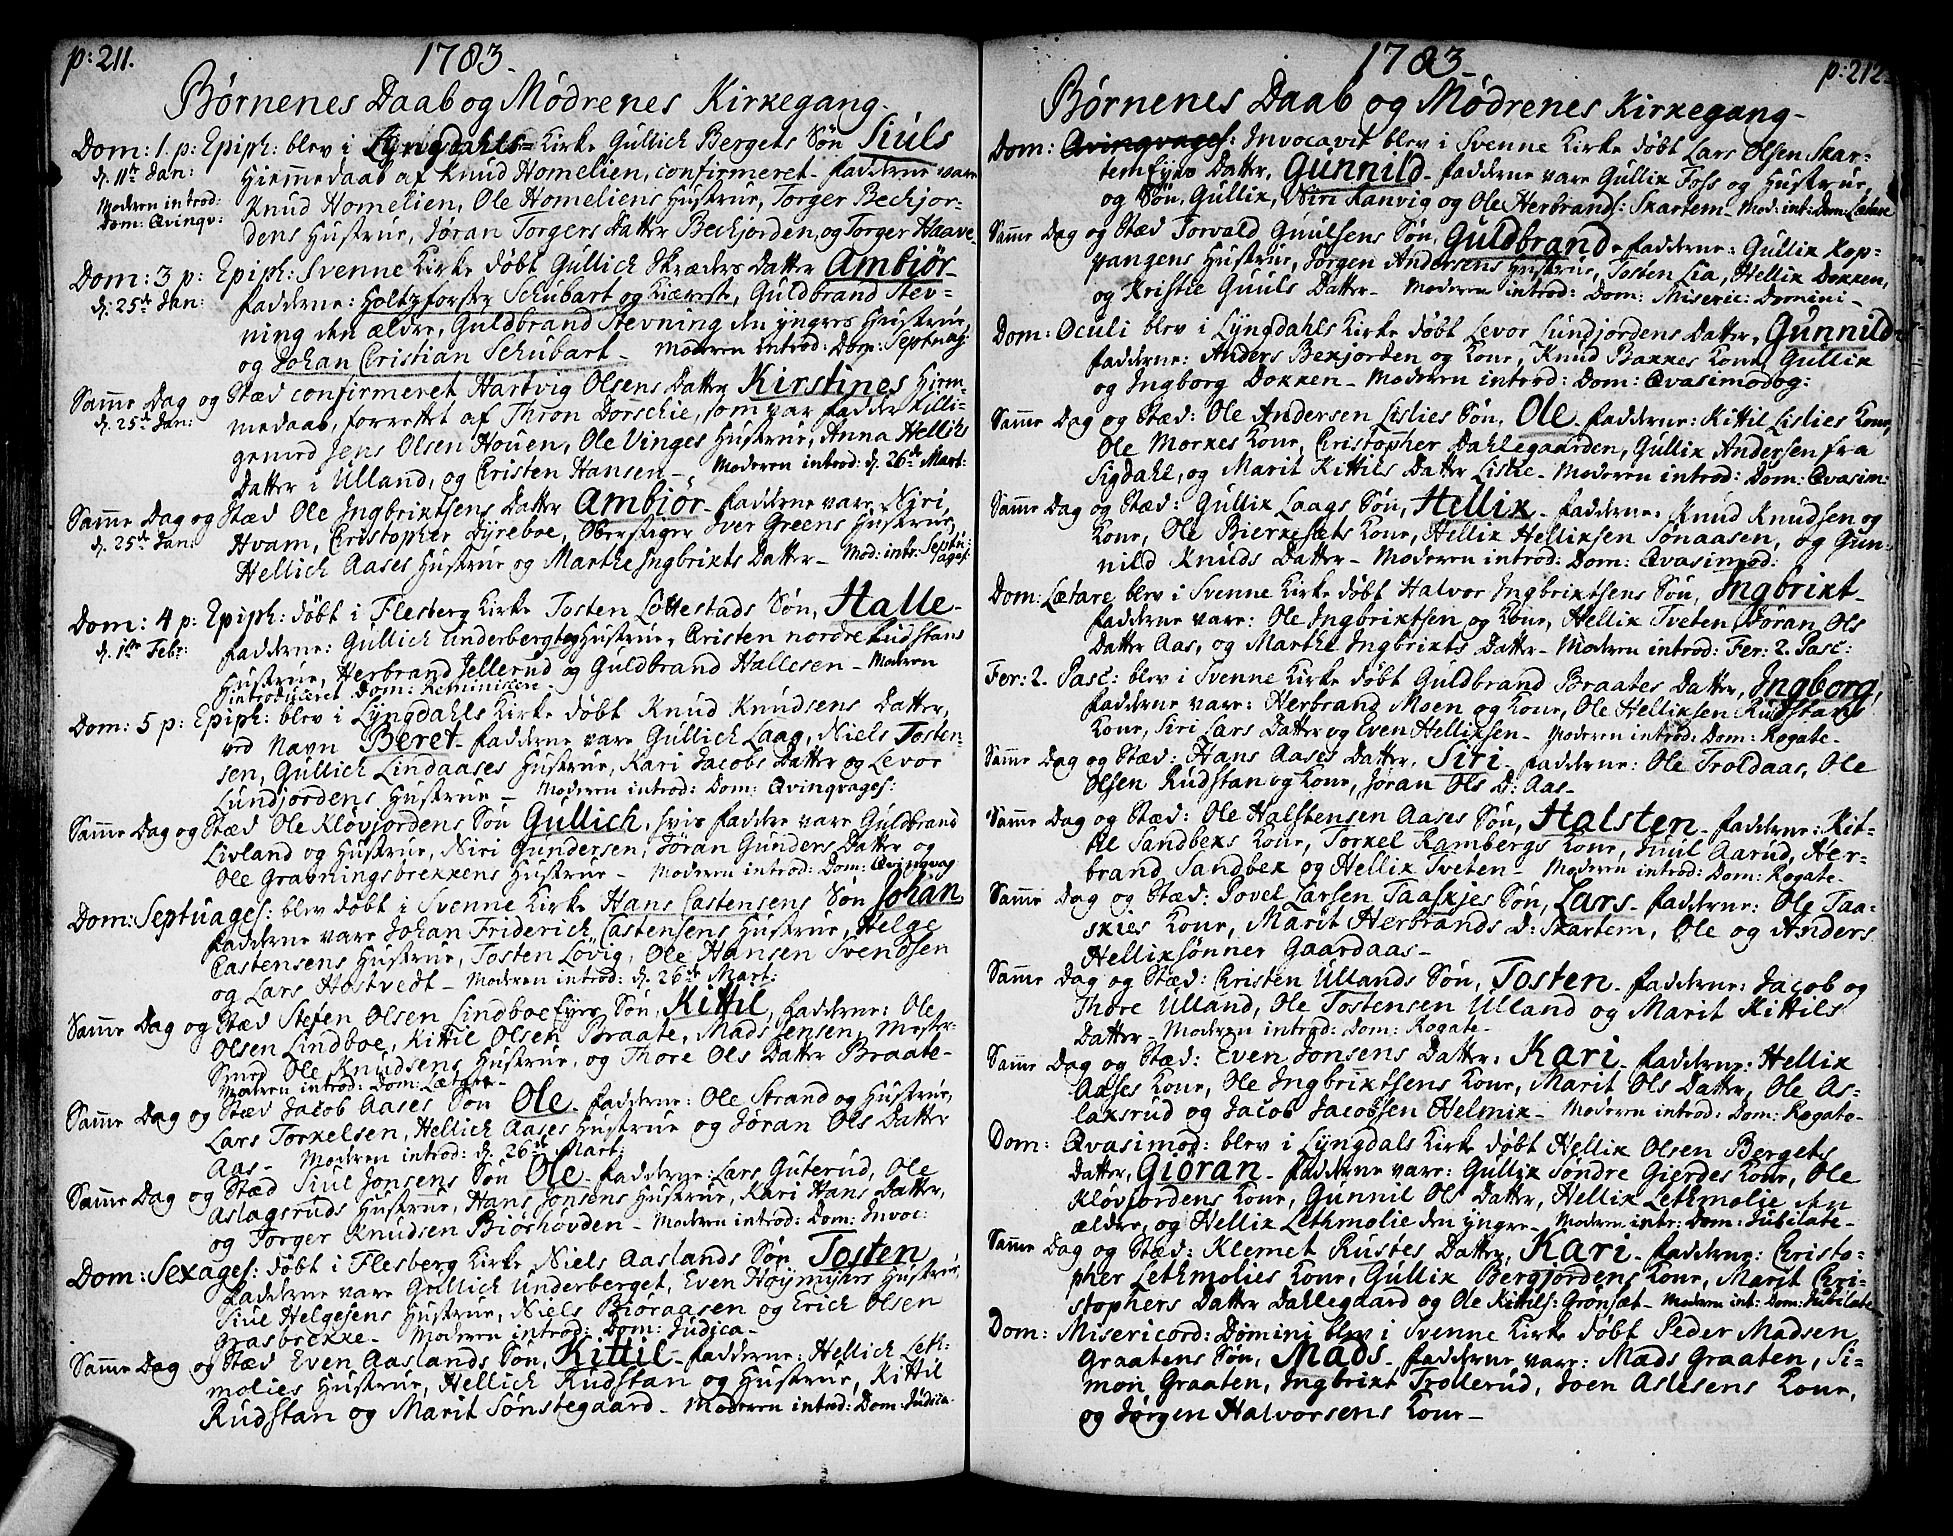 p: 211.
1783.
Børnenes Daab og Mødrenes Kirkegang.
Dom: 1. p: Epiph: blev i Lyngdahls Kirke Gullich Bergets Søn Siuls
d. 11te Jan: Hiemmedaab af Knud Homelien, confirmeret. Fadderne vare
Moderen introd: Knud Homelien, Ole Homeliens Hustrue, Torger Beckjor-
Dom: Qvinqv: dens Hustrue, Jøran Torgers Datter Beckjorden, og Torger Haave
Dom: 3 p: Epiph: Svenne Kirke døbt Gullich Skræders Datter Ambiør
d. 25de Jan: Fadderne: Holtzførster Schubart og Kiæreste, Guldbrand Stev-
ning den ældre, Guldbrand Stevning den yngres Hustrue,
og Johan Christian Schubart. Moderen introd: Dom: Septuag:
Samme Dag og Stæd confirmeret Hartvig Olsens Datter Kirstines Hiem-
d. 25de Jan: medaab, forrettet af Thron Dorschie, som var Fadder tilli-
gemed Jens Olsen Houen, Ole Vinges Hustrue, Anna Hellichs
Datter i Ulland, og Christen Hansen. Moderen introd: d. 26de Mart:
Samme Dag og Stæd Ole Ingbrixtsens Datter Ambiør. Fadderne vare Niri
d. 25de Jan: Hvam, Christopher Dyreboe, Oberstiger Iver Greens Hustrue,
Hellich Aases Hustrue og Marthe Ingbrixts Datter. Mod: intr: Septu-
ages:
Dom: 4 p: Epiph: døbt i Flesberg Kirke Tosten Lottestads Søn, Halle
d. 1ste Febr: Fadderne: Gullich Underberget og Hustrue, Christen nordre Rudstans
Hustrue, Herbrand Jellerud og Guldbrand Hallesen. Moderen
introduceret Dom: Reminiscere.
Dom: 5 p: Epiph: blev i Lyngdahls Kirke døbt Knud Knudsens Datter,
ved Navn Beret. Fadderne vare Gullich Laag, Niels Tosten-
sen, Gullich Lindaases Hustrue, Kari Jacobs Datter og Levor
Lundjordens Hustrue. Moderen introd: Dom: Qvinqvages:
Samme Dag og Stæd Ole Kløvjordens Søn Gullich, hvis Faddere vare Guldbrand
Livland og Hustrue, Niri Gundersen, Jøran Gunders Datter og
Ole Gravningsbrekkens Hustrue. Moderen introd: Dom: Qvinqvag
Dom: Septuages: blev døbt i Svenne Kirke Hans Castensens Søn Johan
Fadderne vare Johan Friderich Castensens Hustrue, Helge
Castensens Hustrue, Tosten Løvig, Ole Hansen Svendsen
og Lars Hostvedt. Moderen introd: d. 26de Mart:
Samme Dag og Stæd Stefen Olsen Lindboe Eyes Søn, Kittil, Fadderne: Ole
Olsen Lindboe, Kittil Olsen Braate, Mads Jensen, Mester-
Smed Ole Knudsens Hustrue, og Thore Ols Datter Braate.
Moderen introd: Dom: Lætare.
Samme Dag og Stæd Jacob Aases Søn Ole. Fadderne: Ole Strand og Hustrue,
Lars Torkelsen, Hellich Aases Hustrue og Jøran Ols Datter
Aas. Moderen introd: d. 26de Mart:
Samme Dag og Stæd Siul Jonsens Søn Ole. Fadderne: Lars Guterud, Ole
Aslagsruds Hustrue, Hans Jonsens Hustrue, Kari Hans Datter,
og Torger Knudsen Biørhovden. Moderen introd: Dom: Invoc:
Dom: Sexages: døbt i Flesberg Kirke Niels Aaslands Søn Tosten
Fadderne vare Gullich Underberget, Even Høymyhrs Hustrue,
Siul Helgesens Hustrue, Niels Biøraasen og Erich Olsen
Grasbrekke. Moderen introd: Dom: Judica.
Samme Dag og Stæd Even Aaslands Søn, Kittil. Fadderne: Hellich Leth-
molies Hustrue, Hellich Rudstan og Hustrue, Kittil
Rudstan og Marit Sønstegaard. Moderen introd: Dom: Judica.
1783
p: 212
Børnenes Daab og Mødrenes Kirkegang.
Dom: Qvinqvages: Invocavit blev i Svenne Kirke døbt Lars Olsen Skar-
tem Eyes Datter, Gunnild. Fadderne vare Gullix Foss og Hustrue,
og Søn, Gullix, Niri Ranvig og Ole Herbrands: Skartem. Mod: int: Dom: Lætare
Samme Dag og Stæd Torvald Guulsens Søn, Guldbrand. Fadderne: Gullix Kop-
pangens Hustrue, Jørgen Andersens Hustrue, Tosten Lia, Hellix Dokken,
og Kristie Guuls Datter. Moderen introd: Dom: Miseric: Domini.
Dom: Oculi blev i Lyngdahls Kirke døbt Levor Lundjordens Datter, Gunnild
Fadderne: Anders Bexjorden og Kone, Knud Bakkes Kone, Gullix
og Ingborg Dokken. Moderen introd: Dom: Qvasimodog:
Samme Dag og Stæd: Ole Andersen Lislies Søn, Ole. Fadderne: Kittil Lislies Kone,
Ole Morkes Kone, Christopher Dahlegaarden, Gullix Andersen fra
Sigdahl, og Marit Kittils Datter Lislie. Moderen introd: Dom: Qvasim:
Samme Dag og Stæd: Gullix Laags Søn, Hellix. Fadderne: Knud Knudsen og
Kone, Ole Bierkesæts Kone, Hellix Hellixsen Tonaasen, og Gun-
nild Knuds Datter. Moderen introd: Dom: Qvasimod:
Dom: Lætare blev i Svenne Kirke døbt Halvor Ingbrixtsens Søn, Ingbrixt.
Fadderne vare: Ole Ingbrixtsen og Kone, Hellix Tveten, Jøran Ols
Datter Aas, og Marthe Ingbrixts Datter. Moderen introd: Fer: 2. Pasc:
Fer: 2. Pasc: blev i Svenne Kirke døbt Guldbrand Braates Datter, Ingborg,
Fadderne vare: Herbrand Moen og Kone, Ole Hellixsen Rudstans
Kone, Siri Lars Datter og Even Hellixsen. Moderen introd: Dom: Rogate.
Samme Dag og Stæd: Hans Aases Datter, Siri. Fadderne: Ole Troldaas, Ole
Olsen Rudstan og Kone, Jøran Ols D: Aas.
Samme Dag og Stæd: Ole Halstensen Aases Søn, Halsten. Fadderne: Kit-
til Sandbeks Kone, Torkel Rambergs Kone, Juul Aarud, Her-
brand Sandbek og Hellix Tveten. Moderen introd: Dom: Rogate.
Samme Dag og Stæd: Povel Larsen Taaskjes Søn, Lars. Fadderne: Ole Taa-
skies Kone, Marit Herbrands D: Skartem, Ole og Anders
Hellixsønner Gaardaas.
Samme Dag og Stæd: Christen Ullands Søn, Tosten. Fadderne: Jacob og
Thore Ulland, Ole Tostensen Ulland og Marit Kittils
Datter. Moderen introd: Dom: Rogate.
Samme Dag og Stæd: Even Jonsens Datter, Kari. Fadderne: Hellix
Aases Kone, Ole Ingbrixtsens Kone, Marit Ols Datter, Ole As-
laxsrud og Jacob Jacobsen Helmix. Moderen introd: Dom: Rogate.
Dom: Qvasimod: blev i Lyngdals Kirke døbt Hellix Olsen Bergets
Datter, Gioran. Fadderne vare: Gullix søndre Gierdes Kone, Ole
Kløvjordens Kone, Gunnil Ols Datter, Hellix Lethmolie den
ældre, og Hellix Lethmolie den yngre. Moderen intr: Dom: Jubilate.
Samme Dag og Stæd: Klemet Rustes Datter, Kari. Fadderne: Christo-
pher Lethmolies Kone, Gullix Bergjordens Kone, Marit Chri-
stophers Datter Dahlegaard og Ole Kittils: Grønsæt. Moderen int: Dom: Jubilate
Dom: Misericord: Domini blev i Svenne Kirke døbt Peder Madsen
Graatens Søn, Mads. Fadderne vare: Mads Graaten, Si-
mon Graaten, Ingbrixt Trollerud, Joen Aslesens Kone,
og Jørgen Halvorsens Kone.